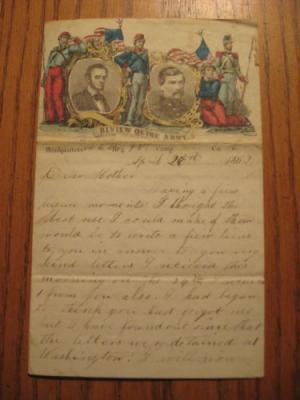 REVIEW OF THE ARMY
Headquarters Reg Camp Co.
186
Dear Mother
Having a few
leisure moments I thought the
best use I could make of them
would be to write a few lines
to you in answer to you very
kind letters I received this
morning one
from you also. I had began
to think you had forgot me
but I have found out since that
the letters were detained at
Washington. I will now